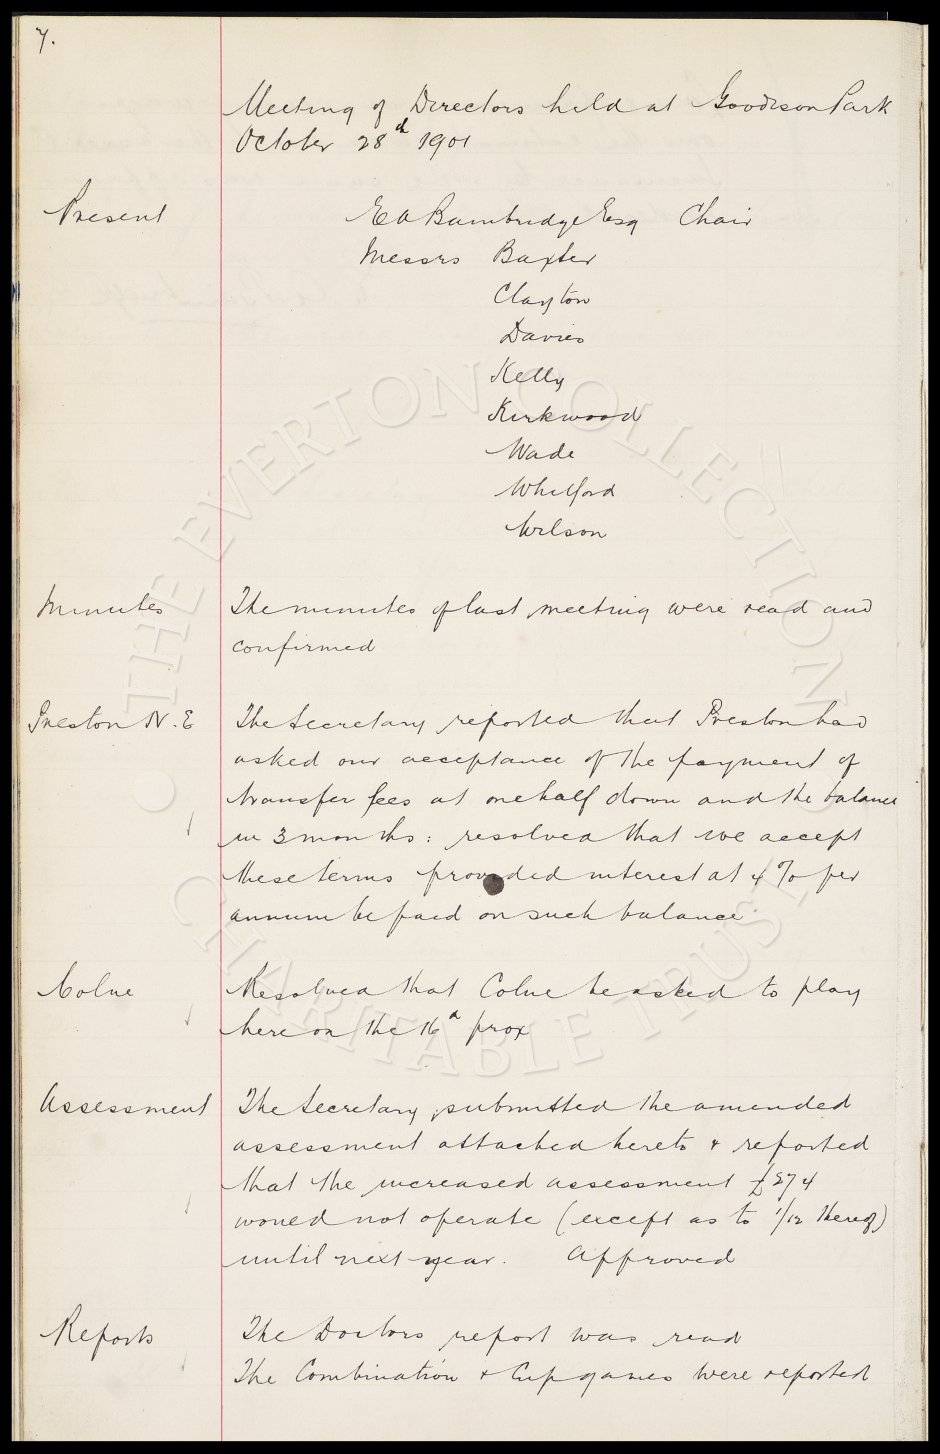 7.
Meeting of Directors held at Goodison Park
October 28th 1901
Present E A Bainbridge Esq Chair
Messrs Baxter
Clayton
Davies
Kelly
Kirkwood
Wade
Whitford
Wilson
Minutes The minutes of last meeting were read and
confirmed
Preston N. E The Secretary reported that Preston had
asked our acceptance of the payment of
transfer fees at one half down and the balance
in 3 months: resolved that we accept
these terms provided interest at 4 % per
annum be paid on such balance.
Colne Resolved that Colne be asked to play
here on the 16th prox
Assessment The Secretary submitted the amended
assessment attached hereto & reported
that the increased assessment £274
would not operate (except as to 1/12 thereof)
until next year. Approved
Reports The Doctors report was read
The Combination & Cup games were reported
THE EVERTON COLLECTION
CHARITABLE TRUST